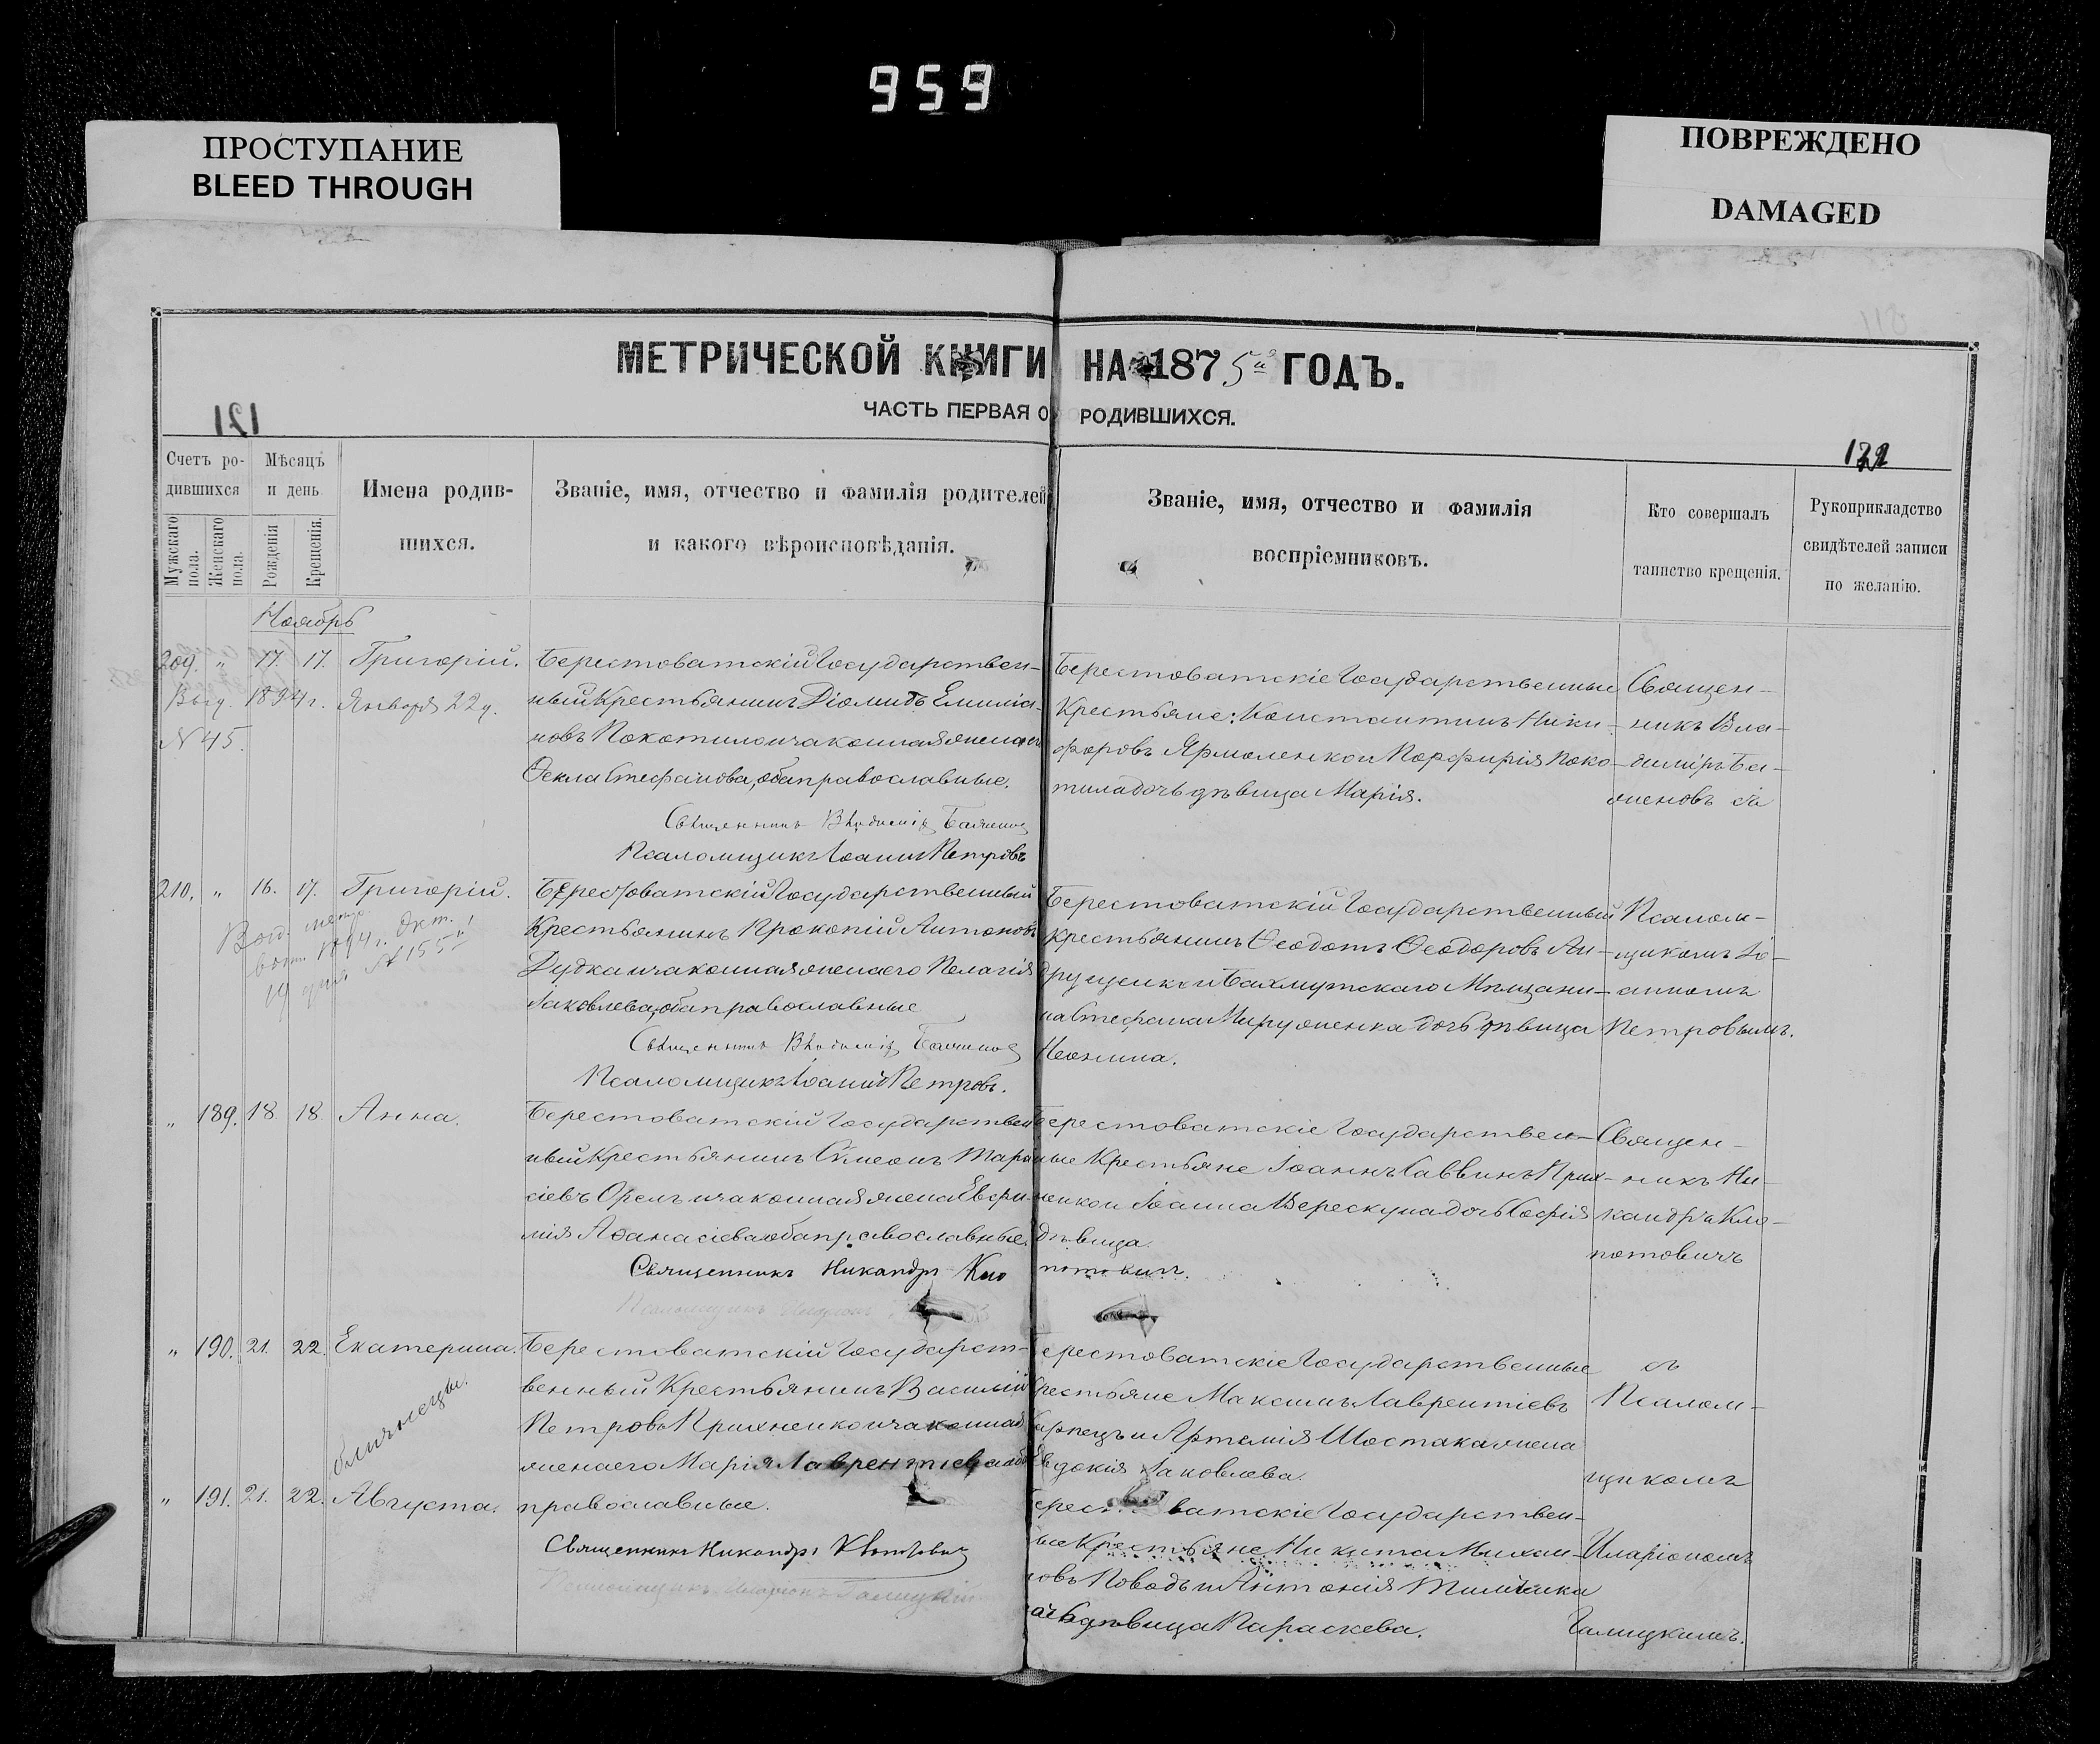 959
ПРОСТУПАНИЕ
BLEED THROUGH
ПОВРЕЖДЕНО
DAMAGED
МЕТРИЧЕСКОЙ КНИГИ НА 1875й ГОДЪ.
ЧАСТЬ ПЕРВАЯ О РОДИВШИХСЯ.
121
Счетъ ро-
дившихся
Мужскаго пола.
Женскаго пола.
Мѣсяцъ
и день
Рожденія
Крещенія.
Имена родив-
шихся.
Званіе, имя, отчество и фамилія родителей
и какого вѣроисповѣданія.
Званіе, имя, отчество и фамилія
воспріемниковъ.
Кто совершалъ
таинство крещенія.
Рукоприкладство
свидѣтелей записи
по желанію.
Ноябрь
209. " 17. 17. Григорій.
Выд. 1894 г. Января 22 д.
N 45.
Берестоватскій Государствен-
ный Крестьянинъ Діомидъ Емиліа-
новъ Покотило и законная жена его
Ѳекла Стефанова, оба православные.
Священникъ Владиміръ Баженов
Псаломщикъ Іоаннъ Петровъ
Берестоватскіе Государственные
Крестьяне: Константинъ Ники-
форовъ Ярмоленко и Порфирія Поко-
тила дочь дѣвица Марія.
Священ-
никъ Вла-
диміръ Ба-
женовъ съ
210. " 16. 17. Григорій.
Выд. метр.
1894 г. Окт.
19 дня № 155
Берестоватскій Государственный
Крестьянинъ Прокопій Антоновъ
Дудка и законная жена его Пелагія
Іаковлева, оба православные
Священникъ Владиміръ Баженов
Псаломщикъ Іоаннъ Петровъ.
Берестоватскій Государственный
крестьянинъ Ѳеодотъ Ѳеодоровъ Ан-
друщенко и Бахмутскаго Мѣщани-
на Стефана Миружненка дочь дѣвица
Неонила.
Псалом-
щикомъ Іо-
анномъ
Петровымъ.
" 189. 18. 18. Анна.
Берестоватскій Государствен
ный Крестьянинъ Сѵмеонъ Тара
сіевъ Орелъ и законная жена Евфи-
мія Аѳанасіева оба православные.
Священникъ Никандръ Кло
потовичъ.
Берестоватскіе Государствен-
ные Крестьяне Іоаннъ Саввинъ Прих-
ненко и Іоанна Верескуна дочь Софія
дѣвица.
Священ-
никъ Ни-
кандръ Кло-
потовичъ
" 190. 21. 22. Екатерина.
близнецы.
" 191. 21. 22. Августа.
Берестоватскій Государст-
венный Крестьянинъ Василій
Петровъ Прихненко и законная
жена его Марія Лаврентіева оба
православные.
Священникъ Никандръ Клопотович
Псаломщикъ Иларіонъ Галицкій
Берестоватскіе Государственные
крестьяне Максимъ Лаврентіевъ
и Артемія Шостака жена
Евдокія Іаковлева.
ватскіе Государствен-
ные Крестьяне Никита Михаи-
ловъ и Антонія
дочь дѣвица Параскева.
съ
Псалом-
щикомъ
Иларіономъ
Галицкимъ.